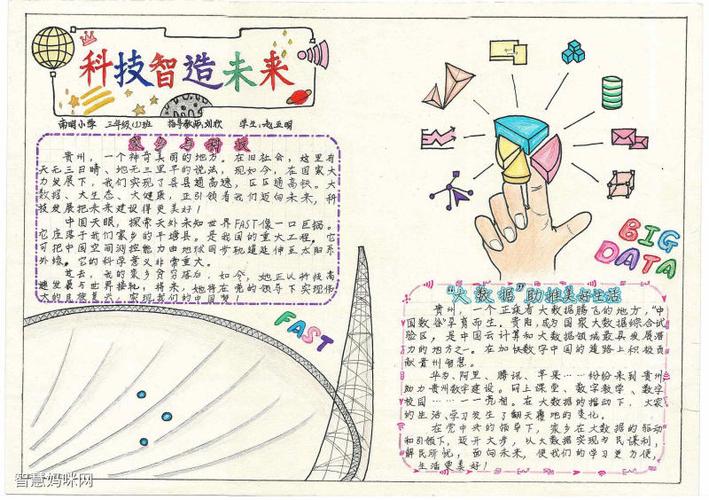 科技智造未来
南明小学 三年级(1)班 指导教师:刘欣 学生:
家乡与科技
贵州,一个神奇美丽的地方,在旧社会,这里有
天无三日晴、地无三里平的说法,现如今,在国家大
力发展下,我们实现了县县通高速,区区通高铁。大
数据、大生态、大健康,正引领着我们迈向未来,科
技发展把未来建设得更美好!
中国天眼,探索天外未知世界FAST像一口巨锅。
它座落于我们家乡的平塘县,是我国的重大工程。它
可把中国空间测控能力由地球同步轨道延伸至太阳系
外缘。它的科学意义非常重大。
过去,我的家乡贫穷落后,如今,她正以科技高
速发展与世界接轨,将来,她将在党的领导下实现伟
大的民族复兴,实现我们的中国梦!
FAST
BIG
DATA
“大数据”助推美好生活
贵州,一个正乘着大数据腾飞的地方,“中
国数谷”孕育而生。贵阳,成为国家大数据综合试
验区,是中国云计算和大数据领域最具发展潜
力的地方之一。在加快数字中国的道路上积极贡
献贵州智慧。
华为、阿里、腾讯、苹果……纷纷来到贵州
助力贵州数字建设,网上课堂、数字教学、数字
校园……一一亮相。在大数据的推动下,大家
的生活、学习发生了翻天覆地的变化。
在党中央的领导下,家乡在大数据的驱动
和引领下,迈开大步,从大数据实现为民便利,
解民所忧,面向未来,使我们的学习更方便,
生活更美好!
智慧妈咪网